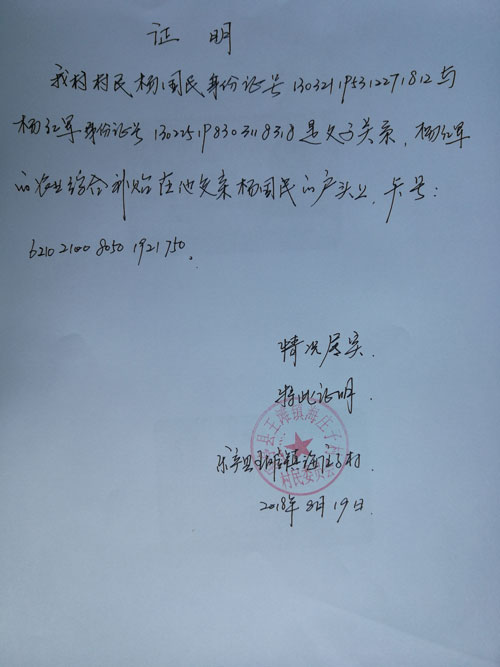 证 明
我村村民杨国民身份证号130321195312271812与
杨红军身份证号130225198303118318是父子关系,杨红军
的农业综合补贴在他父亲杨国民的户头上,卡号:
6210 2100 8050 1921 750。
情况属实.
特此证明
县王滩镇海庄子
村民委员会
乐亭县王滩镇海庄子村.
2018年8月19日.